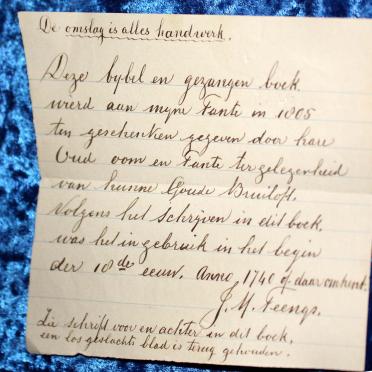 De omslag is alles handwerk.
Deze bybel en gezangen boek
wierd aan myne Tante in 1865
ten geschenken gegeven door hare
Oud oom en Tante ter gelegenheid
van hunne Goude Bruiloft.
Volgens het schrijven in dit boek,
was het in gebruik in het begin
der 18de eeuw. Anno, 1740 of daar omhent.
J. M. Teengs.
Zie schrift voor en achter in dit boek,
een los geslachts blad is terug gehouden.